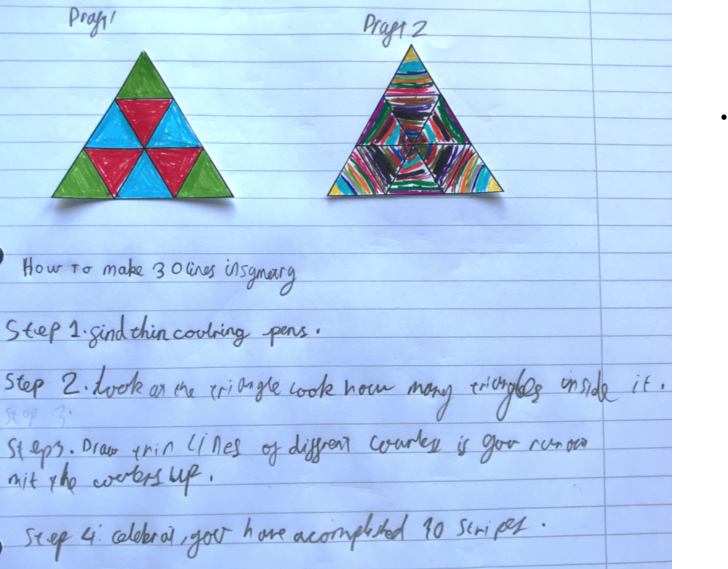 Draft 1
Draft 2
How To make 30 lines in symetry
Step 1. find thin coolring pens.
Step 2. Look at the triangle look how many triangles inside it.
Step 3.
Step 3. Draw thin lines of diffrent is you run out
mit the up.
Step 4: celebrat, you have acomplished 30 stripes.